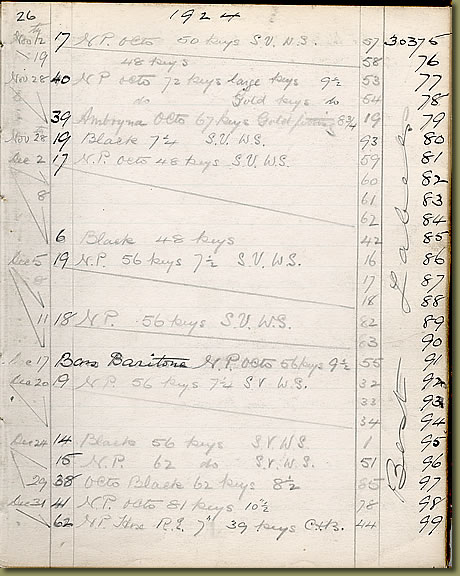 26 1924
Nov 12 17 N.P. Octo 50 keys S.V. W.S. 57 30375
19 48 keys 58 76
Nov 28 40 N.P. Octo 72 keys large keys 9½ 53 77
do Gold keys do 54 78
39 Amboyna Octo 67 keys Gold 8¾ 19 79
Nov 28 19 Black 7¼ S.V. W.S. 93 80
Dec 2 17 N.P. Octo 48 keys S.V. W.S. 59 81
60 82
8 61 83
62 84
6 Black 48 keys 42 85
Dec 5 19 N.P. 56 keys 7½ S.V. W.S. 16 86
8 17 87
18 88
11 18 N.P. 56 keys S.V. W.S. 82 89
83 90
Dec 17 Bass Baritone N.P. Octo 56 keys 9½ 55 91
Dec 20 19 N.P. 56 keys 7½ S.V. W.S. 32 92
33 93
34 94
Dec 24 14 Black 56 keys S.V. W.S. 1 95
15 N.P. 62 do S.V. W.S. 51 96
29 38 Octo Black 62 keys 8½ 65 97
Dec 31 41 N.P. Octo 81 keys 10½ 78 98
62 N.P. Hex R.I. 7" 39 keys 44 99
Best Labels